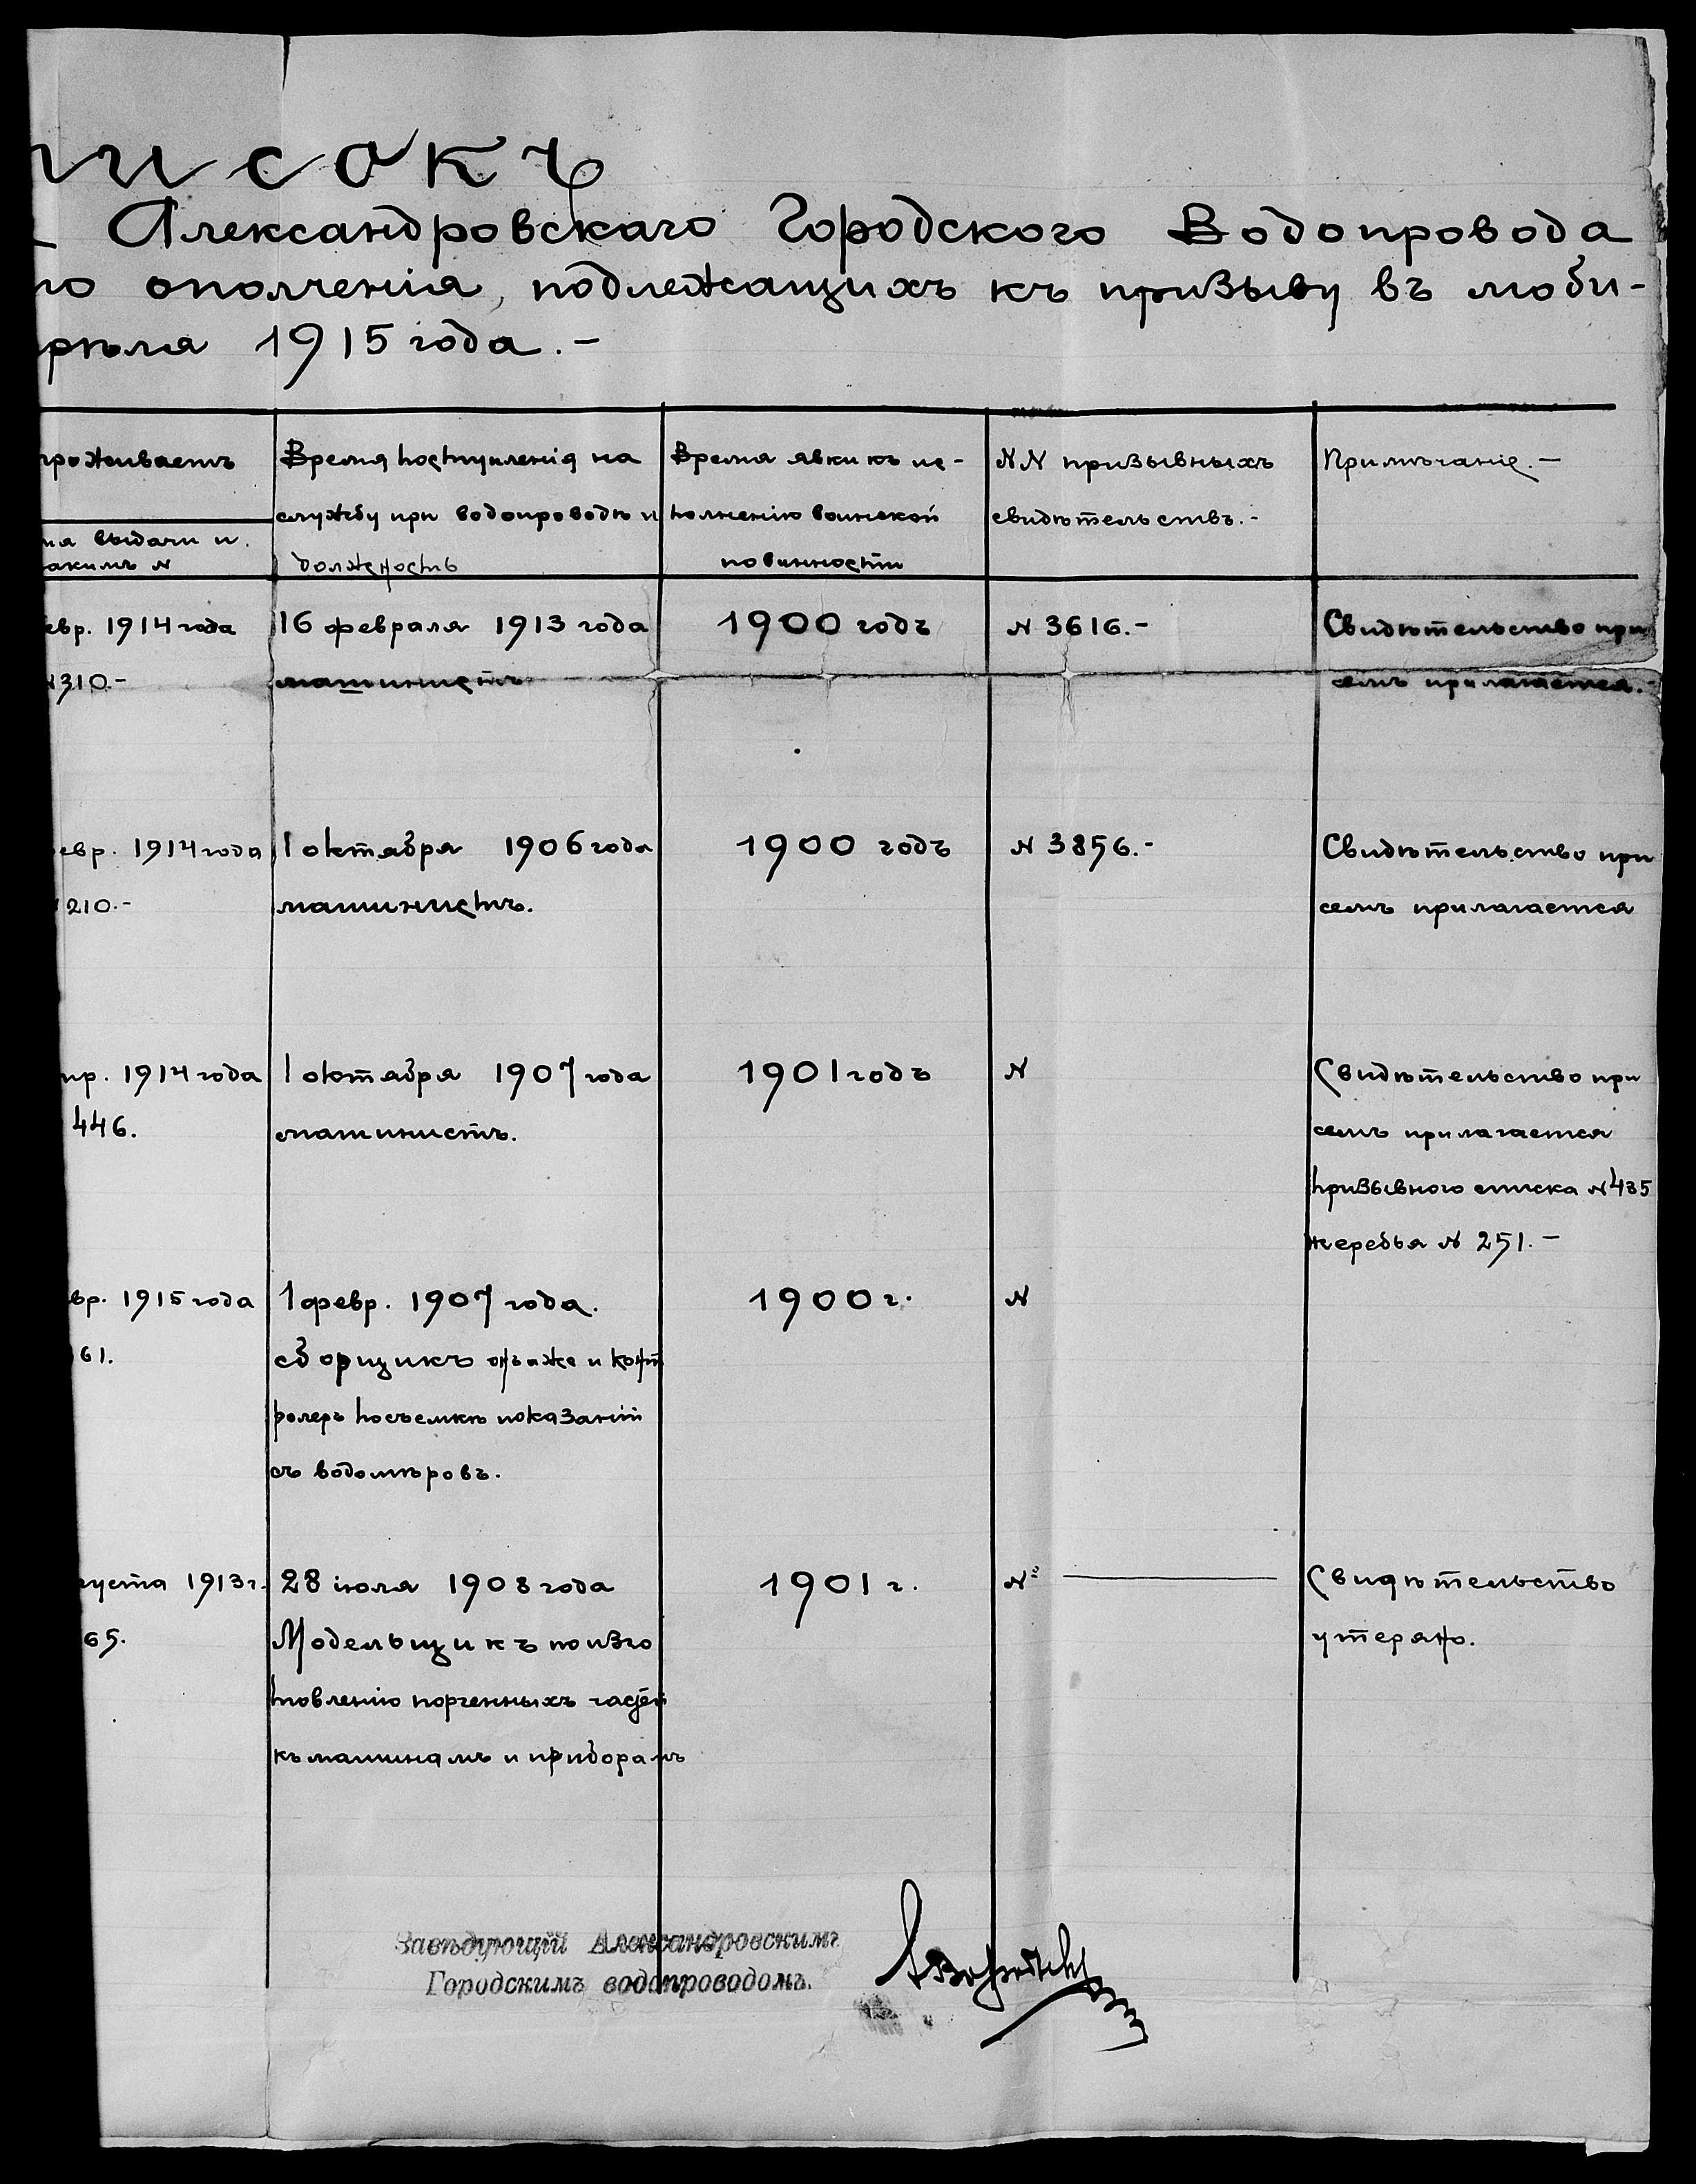 писокъ
Александровскаго Городского Водопровода
го ополченія, подлежащихъ къ призыву въ моби-
рѣля 1915 года.-
проживаетъ
ия выдачи и.
акимъ N
Время поступленія на
службу при водопроводѣ и
должность
Время явки къ ис-
полненію воинской
повинности
NN призывныхъ
свидѣтельствъ.-
Примѣчаніе.-
евр. 1914 года 16 февраля 1913 года 1900 годъ N 3616.- Свидѣтельство при
N310.- машинистъ семъ прилагается.-
евр. 1914 года 1 октября 1906 года 1900 годъ N 3856.- Свидѣтельство при
210.- машинистъ. семъ прилагается
пр. 1914 года 1 октября 1907 года 1901 годъ N Свидѣтельство при
446. машинистъ. семъ прилагается
призывного списка N435
жеребья N 251.-
вр. 1915 года 1 февр. 1907 года. 1900 г. N
61. сборщикъ и конт
ролеръ посъемкѣ показаній
съ водомѣровъ.
густа 1913 г. 28 іюля 1908 года 1901 г. N: Свидѣтельство
65. Модельщикъ по изго утеряно.
товленію порченныхъ частей
къ машинамъ и приборамъ
Завѣдующій Александровскимъ
Городскимъ водопроводомъ.